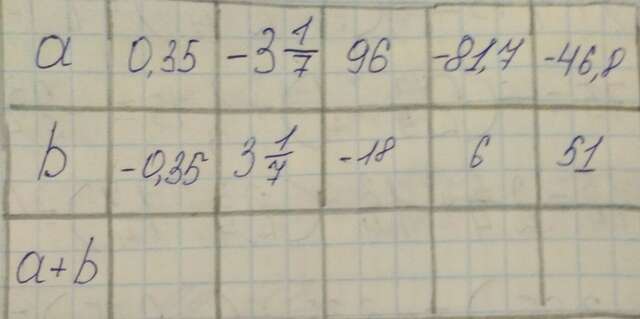 a 0,35 -3 1/7 96 -81,7 -46,8
b -0,35 3 1/7 -18 6 51
a+b